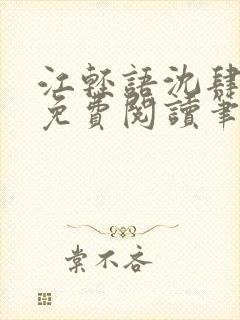 江輕語沈肆
免費閱讀筆
棠不吝